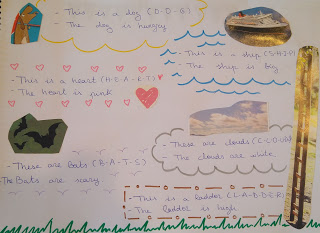 - This is a dog (D-O-G)
- The dog is hungry
- This is a ship (S-H-I-P)
- The ship is big
- This is a heart (H-E-A-R-T)
- The heart is pink
- These are clouds (C-L-O-U
- The clouds are white
- These are bats (B-A-T-S)
- The Bats are scary
- This is a ladder (L-A-D-D-E-R)
- The ladder is high